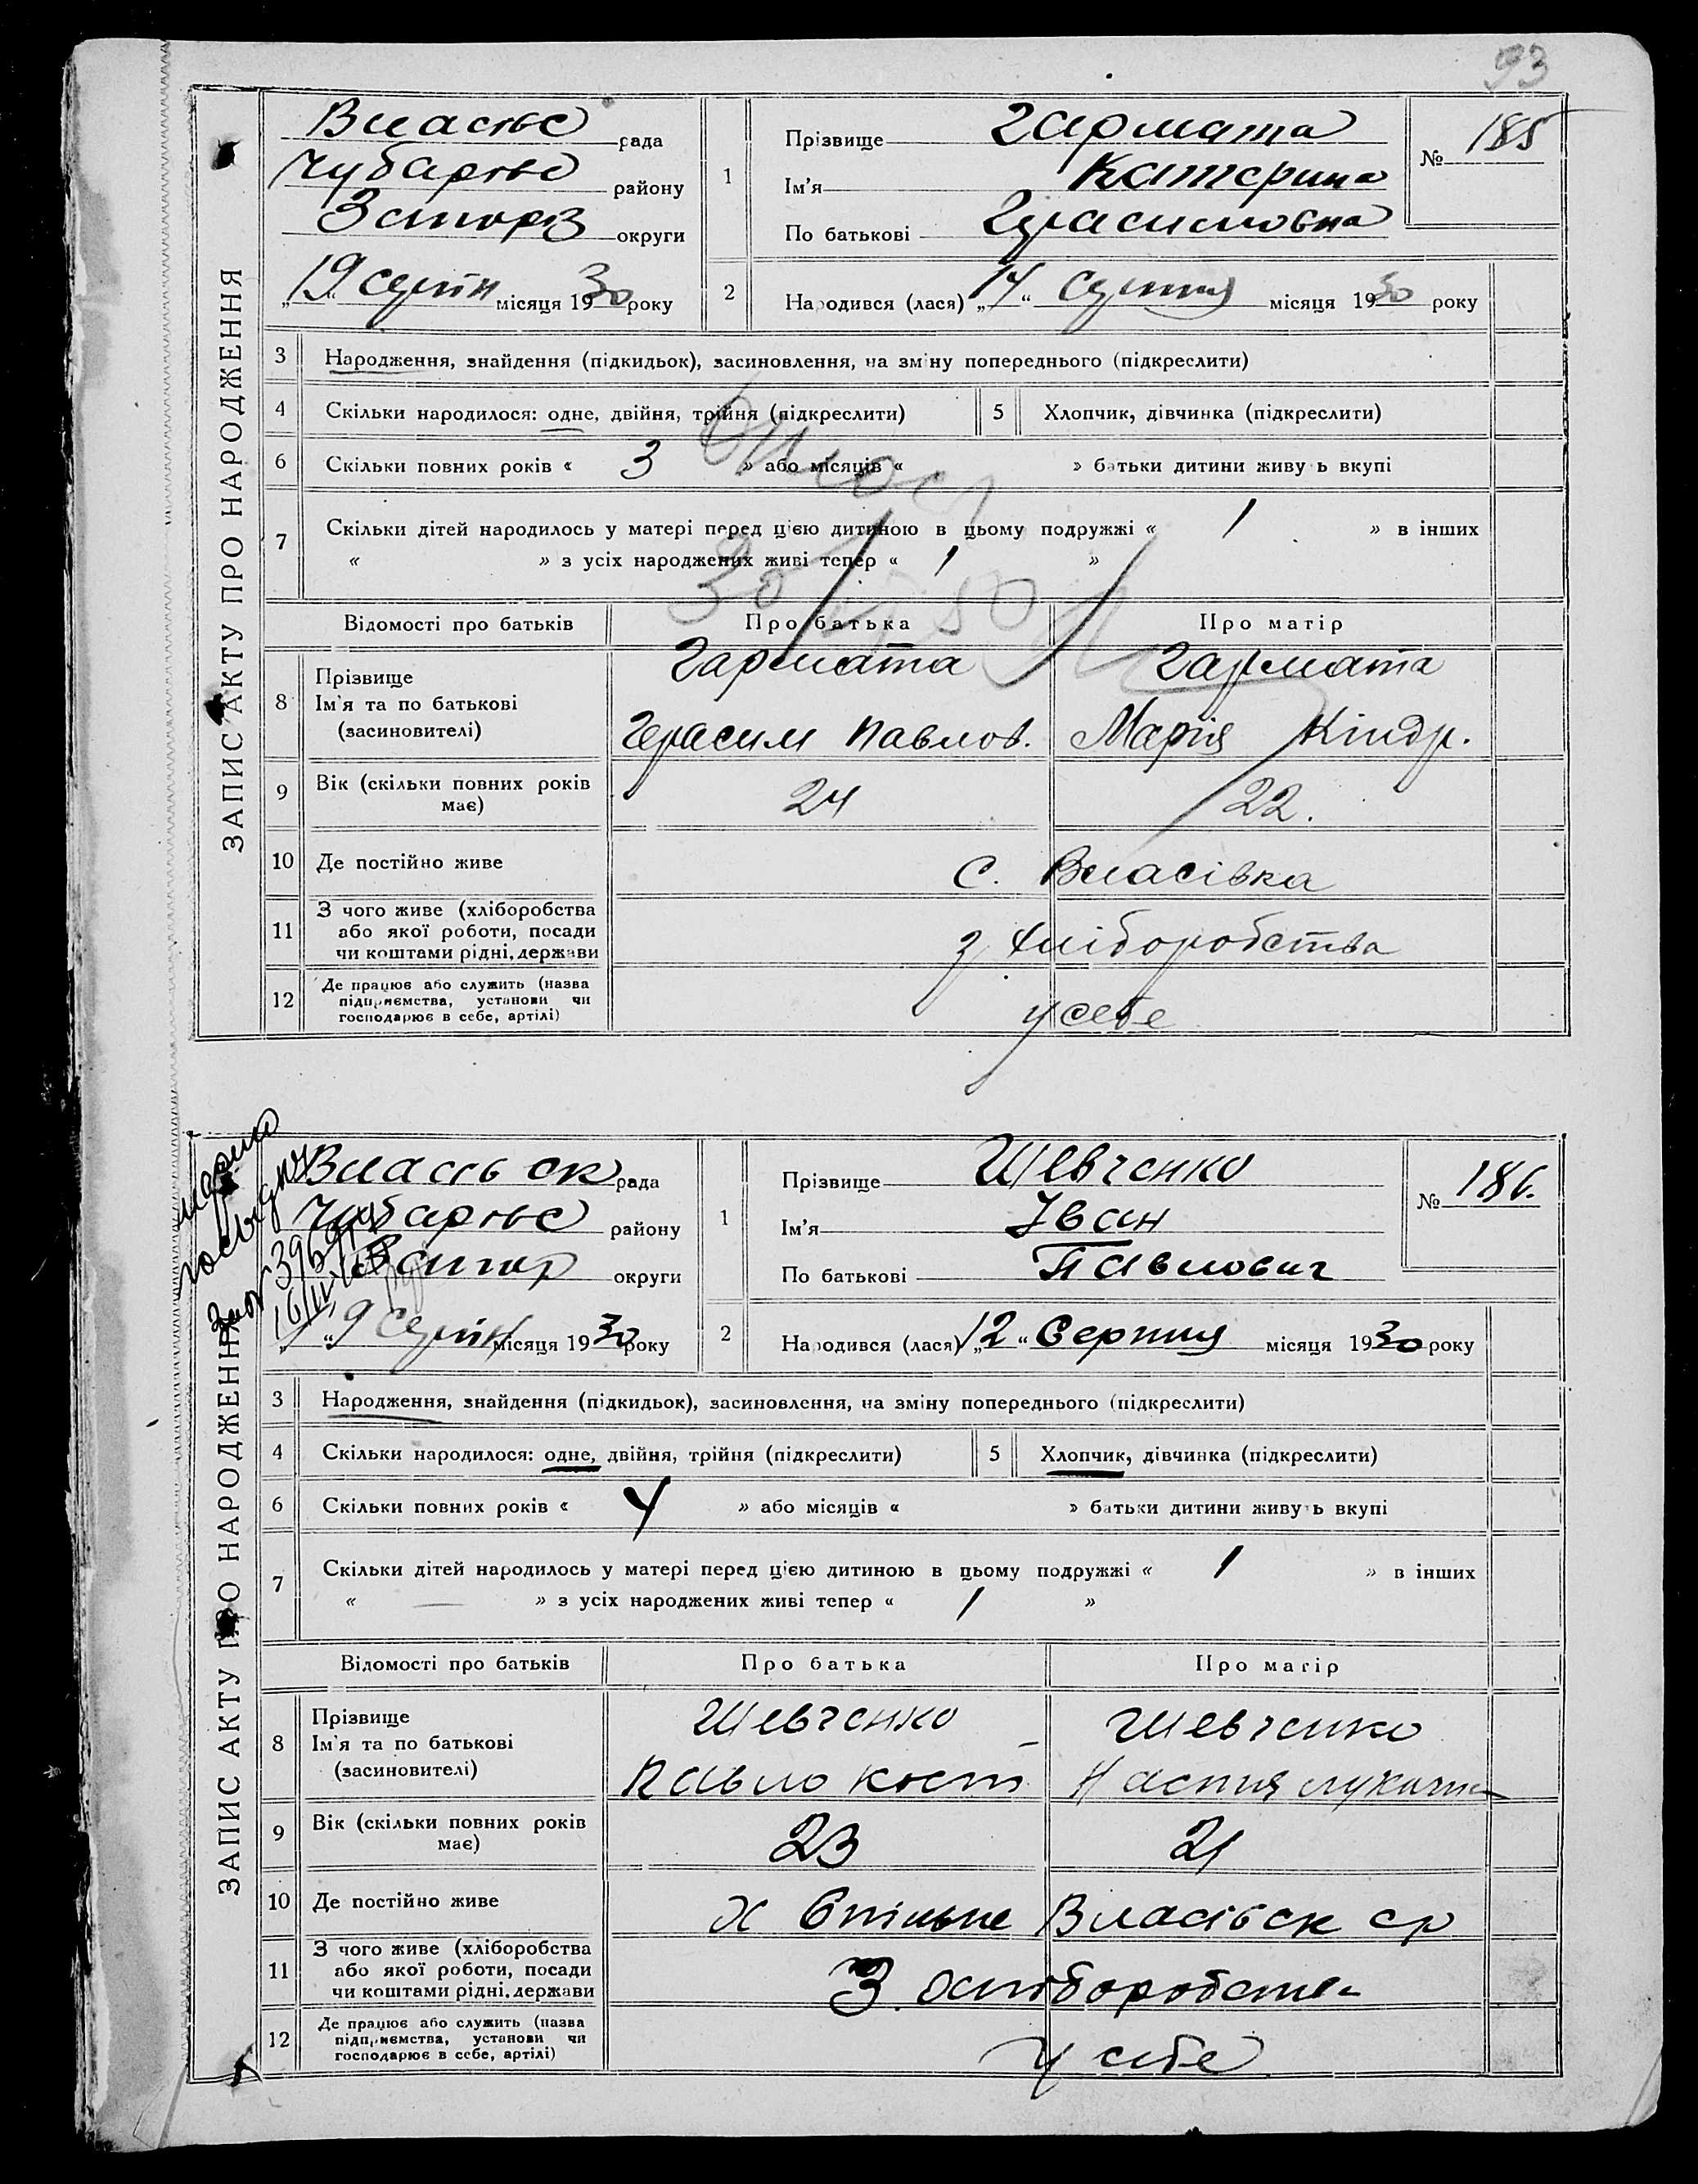 93
ЗАПИС АКТУ ПРО НАРОДЖЕННЯ
Власівс рада
Чубарівс району
Запоріз округи
„19“ серпн місяця 1930 року
1
Прізвище Гармата
Ім'я Катерина
По батькові Герасимовна
№ 185
2
Народився (лася) „14“ серпня місяця 1930 року
3 Народження, знайдення (підкидьок), засиновлення, на зміну попереднього (підкреслити)
4 Скільки народилося: одне, двійня, трійня (підкреслити)
5 Хлопчик, дівчинка (підкреслити)
6 Скільки повних років « 3 » або місяців « » батьки дитини живуть вкупі
7 Скільки дітей народилось у матері перед цією дитиною в цьому подружжі « 1 » в інших
« » з усіх народжених живі тепер « 1 »
Відомості про батьків Про батька Про матір
8 Прізвище
Ім'я та по батькові
(засиновителі)
Гармата
Герасим Павлов.
Гармата
Марія Кіндр.
9 Вік (скільки повних років
має)
24 22.
10 Де постійно живе с. Власівка
11 З чого живе (хліборобства
або якої роботи, посади
чи коштами рідні, держави
з хліборобства
12 Де працює або служить (назва
підприємства, установи чи
господарює в себе, артілі)
у себе
ЗАПИС АКТУ ПРО НАРОДЖЕННЯ
Власівск рада
Чубарівс району
Запор округи
„19“ серпн місяця 1930 року
1
Прізвище Шевченко
Ім'я Іван
По батькові Павлович
№ 186.
2
Народився (лася) „12“ Серпня місяця 1930 року
3 Народження, знайдення (підкидьок), засиновлення, на зміну попереднього (підкреслити)
4 Скільки народилося: одне, двійня, трійня (підкреслити)
5 Хлопчик, дівчинка (підкреслити)
6 Скільки повних років « 4 » або місяців « » батьки дитини живуть вкупі
7 Скільки дітей народилось у матері перед цією дитиною в цьому подружжі « 1 » в інших
« — » з усіх народжених живі тепер « 1 »
Відомості про батьків Про батька Про матір
8 Прізвище
Ім'я та по батькові
(засиновителі)
Шевченко
Павло Кост
Шевченко
Настия
9 Вік (скільки повних років
має)
23 21
10 Де постійно живе х Власівск ср
11 З чого живе (хліборобства
або якої роботи, посади
чи коштами рідні, держави
З
12 Де працює або служить (назва
підприємства, установи чи
господарює в себе, артілі)
у себе